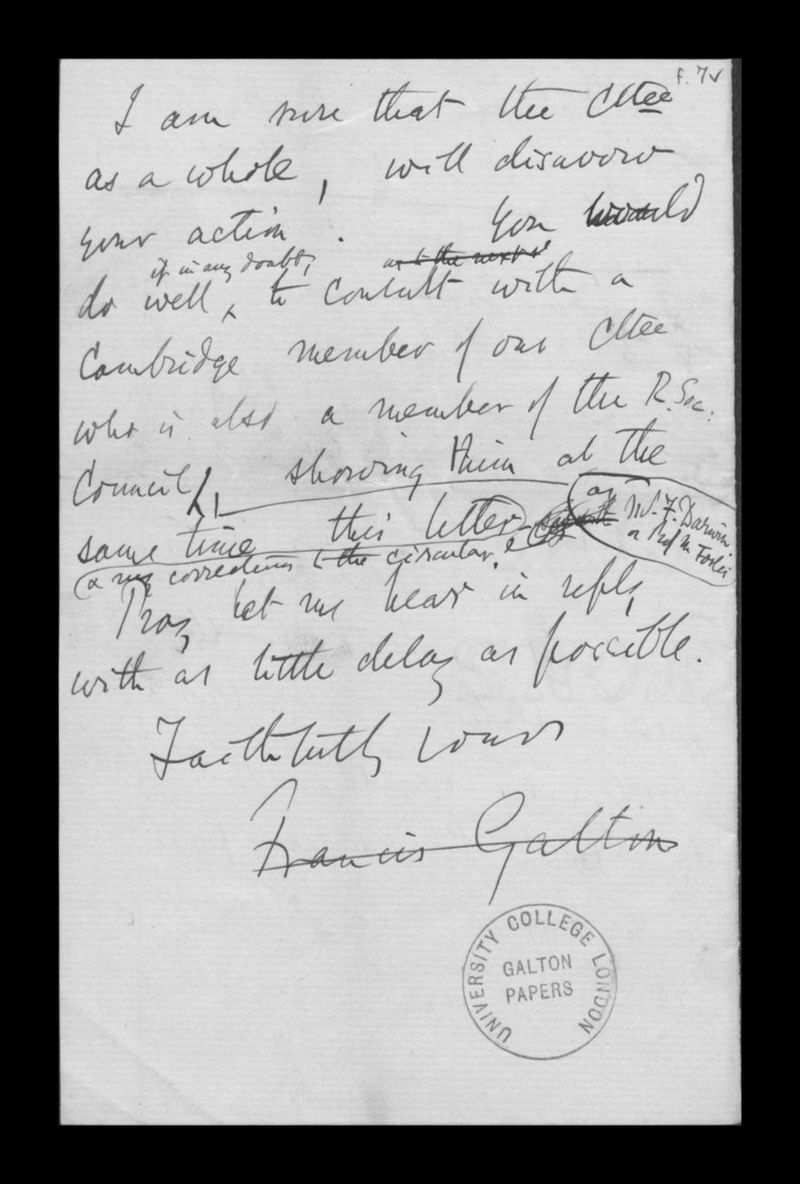 f. 7v
I am sure that the Cttee
as a whole, will disavow
your action. You would
if in any doubt, as to the next
do well, to consult with a
Cambridge member of our Cttee
who is also a member of the R. Soc.
Council, showing them at the
as Mr. F. Darwin
same time this letter
or Prof M. Foster
& my corrections to the circular,
Pray let me hear in reply,
with as little delay as possible.
Faithfully yours
Francis Galton
UNIVERSITY COLLEGE LONDON
GALTON
PAPERS